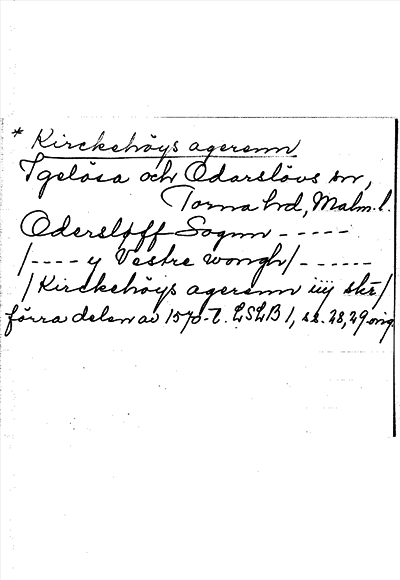 * Kirckehöys agerenn
Igelösa och Odarslövs snr,
Torna hd, Malm. l.
Odersløff Sognn - - - - -
/ - - - - y Vestre wongh / - - - - - -
/ Kirckehöys agerenn iiij skr /
förra delen av 1570-t. LSLB 1, s. 28, 29 orig